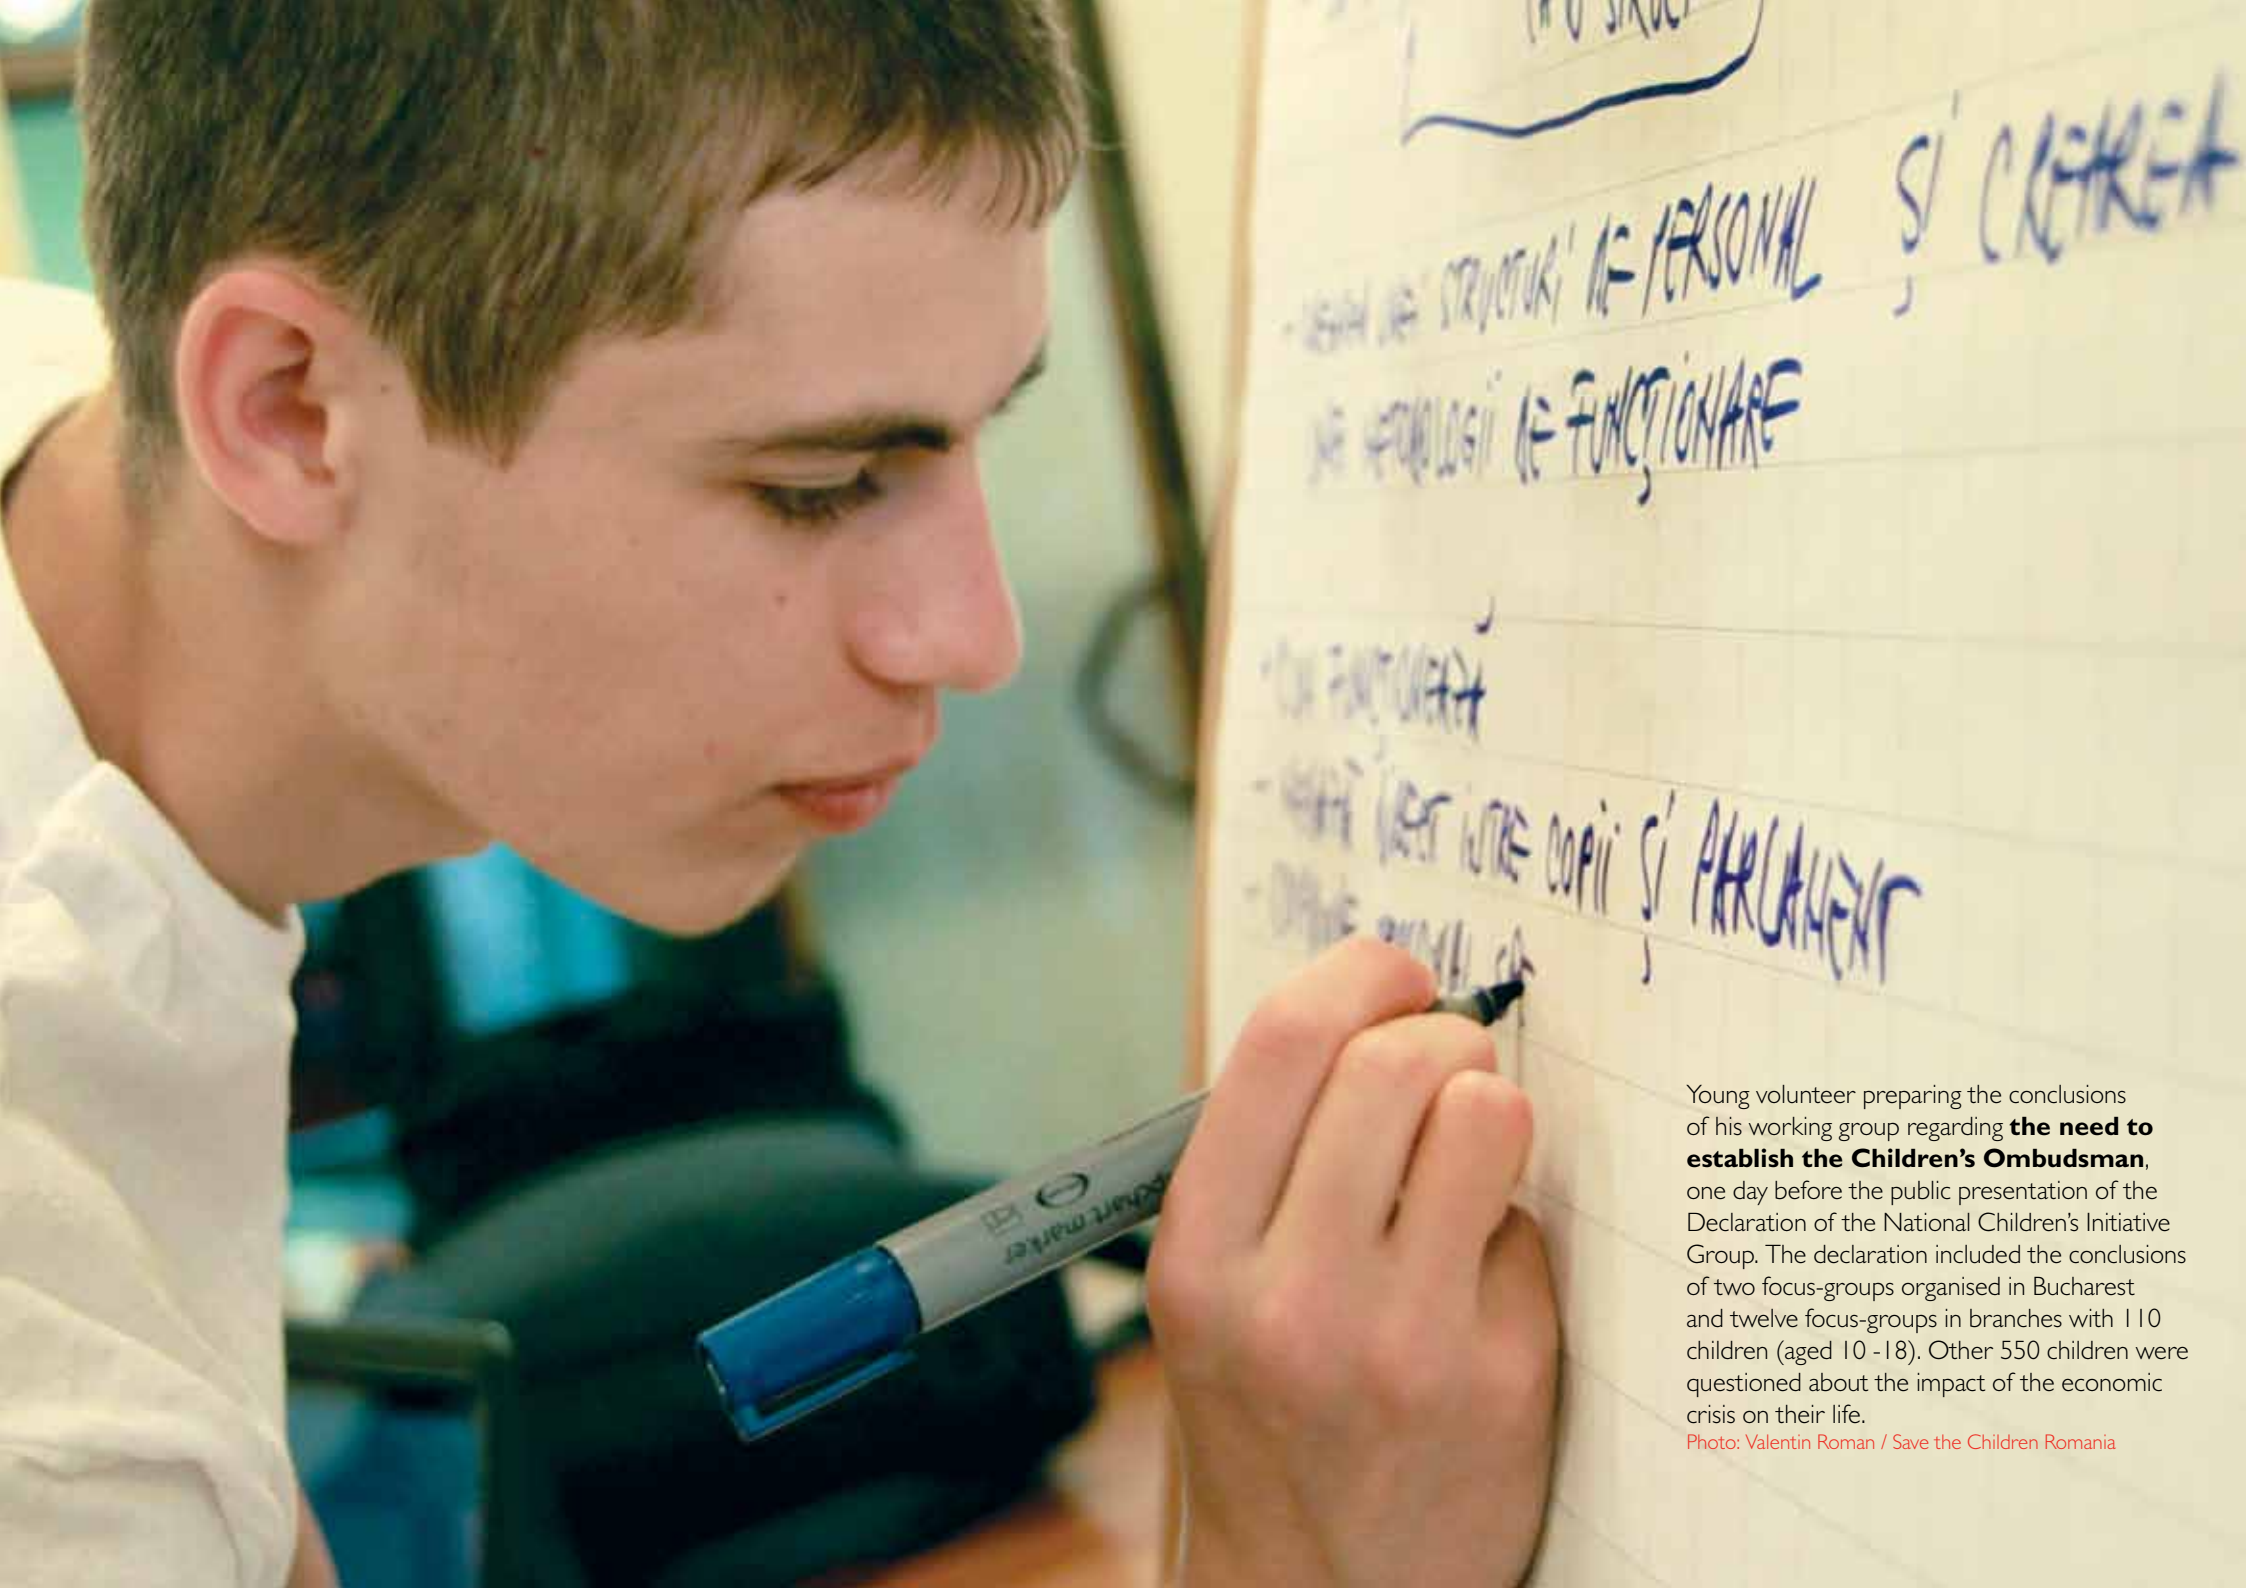 STRUCTURI DE PERSONAL ȘI CREAREA
DE FUNCȚIONARE
ÎNTRE COPII ȘI PARLAMENT
chart marker
Young volunteer preparing the conclusions
of his working group regarding the need to
establish the Children’s Ombudsman,
one day before the public presentation of the
Declaration of the National Children’s Initiative
Group. The declaration included the conclusions
of two focus-groups organised in Bucharest
and twelve focus-groups in branches with 110
children (aged 10 -18). Other 550 children were
questioned about the impact of the economic
crisis on their life.
Photo: Valentin Roman / Save the Children Romania